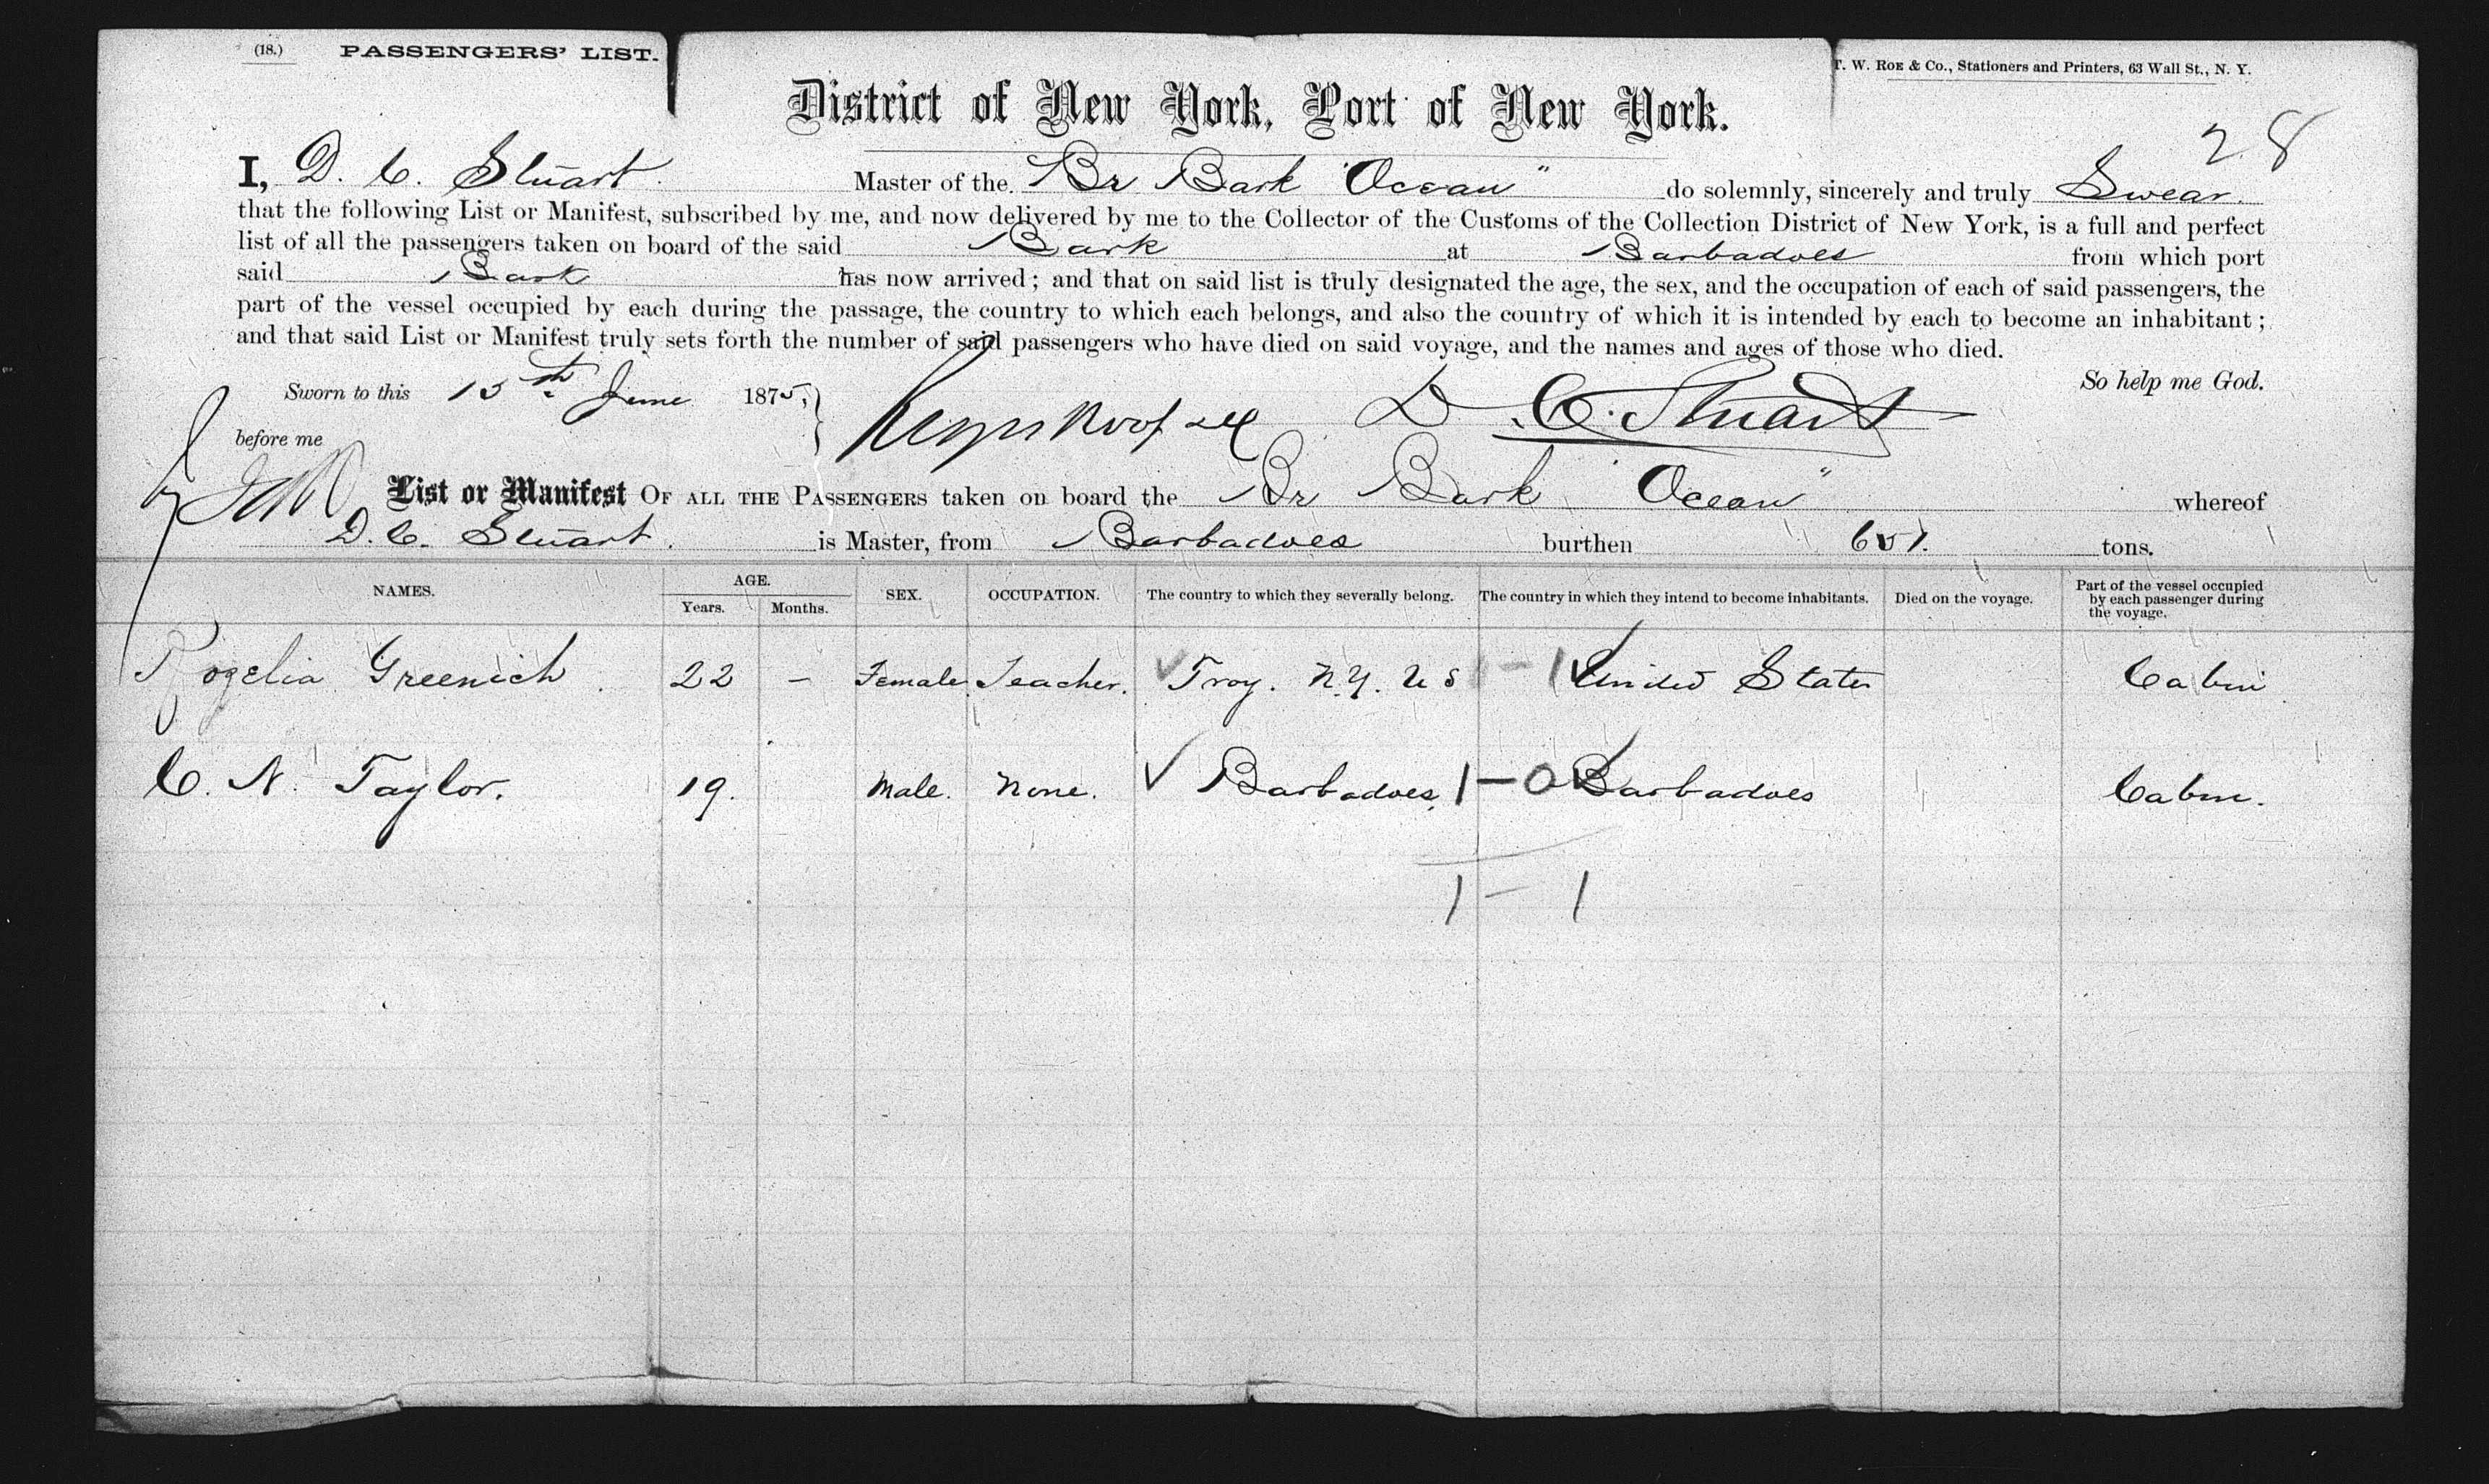 (18.) PASSENGERS' LIST.
T. W. ROE & Co., Stationers and Printers, 63 Wall St., N. Y.
District of New York, Port of New York.
28
I, D. C. Stuart Master of the Br Bark "Ocean" do solemnly, sincerely and truly Swear.
that the following List or Manifest, subscribed by me, and now delivered by me to the Collector of the Customs of the Collection District of New York, is a full and perfect
list of all the passengers taken on board of the said Bark at Barbadoes from which port
said Bark has now arrived; and that on said list is truly designated the age, the sex, and the occupation of each of said passengers, the
part of the vessel occupied by each during the passage, the country to which each belongs, and also the country of which it is intended by each to become an inhabitant;
and that said List or Manifest truly sets forth the number of said passengers who have died on said voyage, and the names and ages of those who died.
So help me God.
Sworn to this 15th June 1875, D C. Stuart
before me
List or Manifest OF ALL THE PASSENGERS taken on board the Br Bark "Ocean" whereof
D. C. Stuart. is Master, from Barbadoes burthen 651. tons.
NAMES. AGE. Years. Months. SEX. OCCUPATION. The country to which they severally belong. The country in which they intend to become inhabitants. Died on the voyage. Part of the vessel occupied by each passenger during the voyage.
Rogelia Greenich 22 – Female. Teacher. Troy. N.Y. U S 1 – 1 United States Cabin
C. N. Taylor. 19. Male. None. Barbadoes. 1 – 0 Barbadoes Cabin.
1 – 1